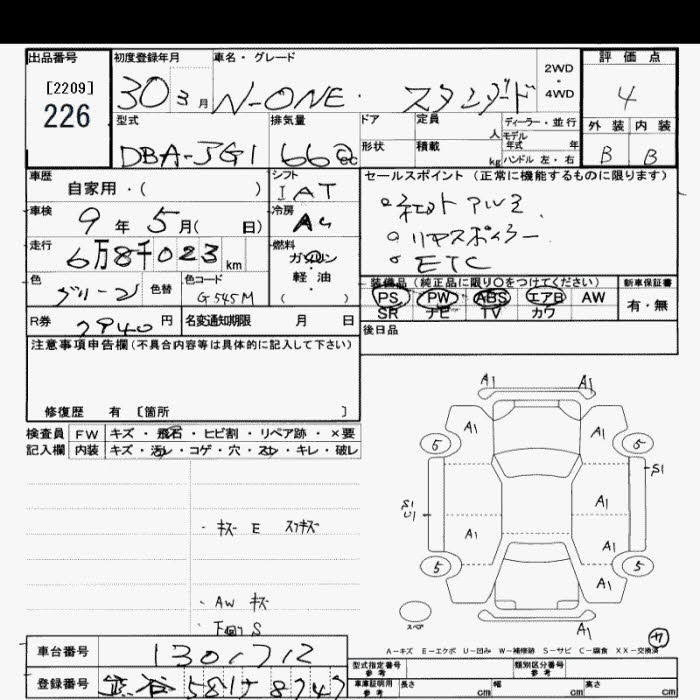 出品番号 初度登録年月 車名・グレード 評価点
[2209] 30 3月 N-ONE・ スタンダード 2WD・4WD 4
226
型式 排気量 ドア 定員 人 ディーラー・並行 外装 内装
DBA-JG1 660cc 形状 積載 kg モデル年式 年 ハンドル 左・右 B B
車歴 シフト セールスポイント (正常に機能するものに限ります)
自家用・( ) IAT
車検 9年 5月( 日) 冷房 AC 。社外アルミ
走行 6万8千023km 燃料 ガソリン・軽油( ) 。リヤスポイラー
。ETC
色 グリーン 色替 色コード G545M
装備品(純正品に限り○をつけてください) 新車保証書
PS PW ABS エアB AW 有・無
SR ナビ TV カワ
R券 7940円 名変通知期限 月 日 後日品
注意事項申告欄(不具合内容等は具体的に記入して下さい)
修復歴 有 [箇所 ]
検査員 FW キズ・飛石・ヒビ割・リペア跡・×要
記入欄 内装 キズ・汚レ・コゲ・穴・スレ・キレ・破レ
A1 A1
A1 A1
5 5
S1
S1 A1
U1
A1 A1
5 5
A1
・キズ E スリキズ
・AW キズ
・下回り S
スペア
A1
A-キズ E-エクボ U-凹み W-補修跡 S-サビ C-腐食 XX-交換済
車台番号 1301712
型式指定番号 参考 類別区分番号 参考
登録番号 熊谷 581 8747
車庫証明用 参考 長さ cm 幅 cm 高さ cm